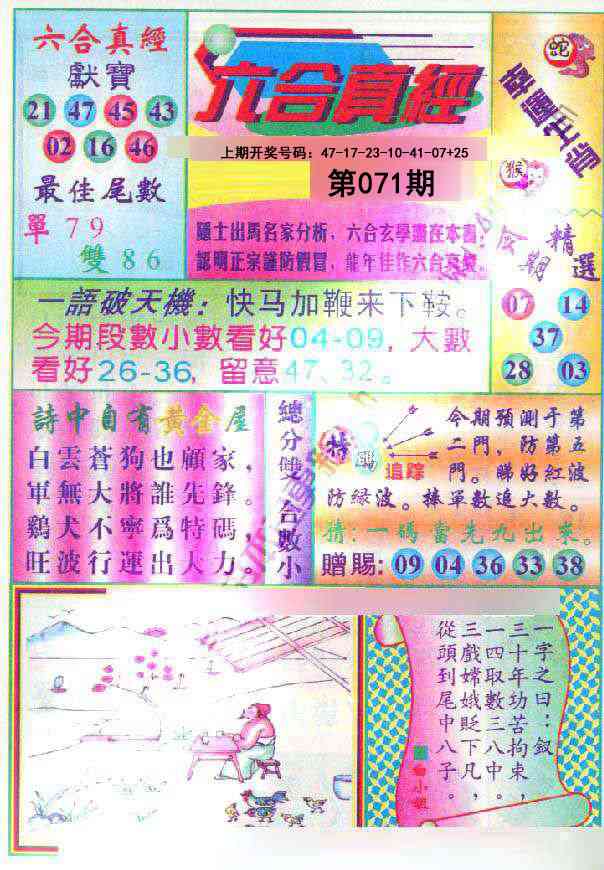 六合真經
獻寶
21 47 45 43
02 16 46
最佳尾數
單79
雙86
六合真經
上期开奖号码：47-17-23-10-41-07+25
第071期
隱士出馬名家分析，六合玄學盡在本書；
認明正宗謹防假冒，龍年佳作六合真經。
蛇
猴
今期精選
07 14
37
28 03
一語破天機：快马加鞭来下鞍。
今期段數小數看好04-09，大數
看好26-36，留意47、32。
詩中自有黃金屋
白雲蒼狗也顧家，
軍無大將誰先鋒。
鷄犬不寧爲特碼，
旺波行運出大力。
總分雙合數小
特碼追踪
今期預測于第
二門，防第五
門。睇好紅波
防绿波。捧單數追大數。
猜：一碼當先九出來。
贈賜：09 04 36 33 38
一字之曰：釵
三十年功苦拘束，
一四取數三八中。
三戲嫦娥貶下凡，
從頭到尾中八子。